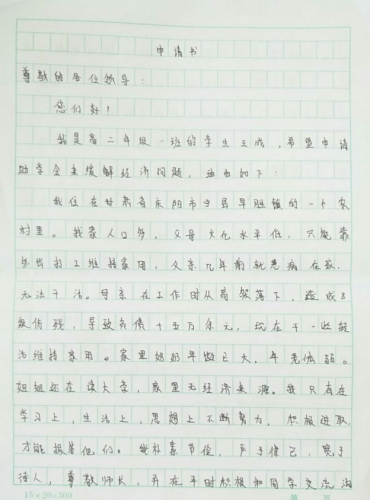 申请书
尊敬的各位领导：
您们好！
我是高二年级一班的学生王成，希望申请
助学金来缓解经济问题，理由如下：
我住在甘肃省庆阳市宁县早胜镇的一个农
村里。我家人口多，父母文化水平低，只能靠
外出打工维持家用，父亲几年前就患病在家，
无法干活。母亲在工作时从高架落下，造成8
级伤残，导致负债十五万余元，现在干一些轻
活维持家用。家里奶奶年龄已大，年老体弱。
姐姐还在读大学，家里无经济来源。我只有在
学习上，生活上，思想上不断努力，积极进取
才能报答他们。我朴素节俭，严于律己，宽于
待人，尊敬师长，并在平时积极和同学交流沟
15×20=300
第 页